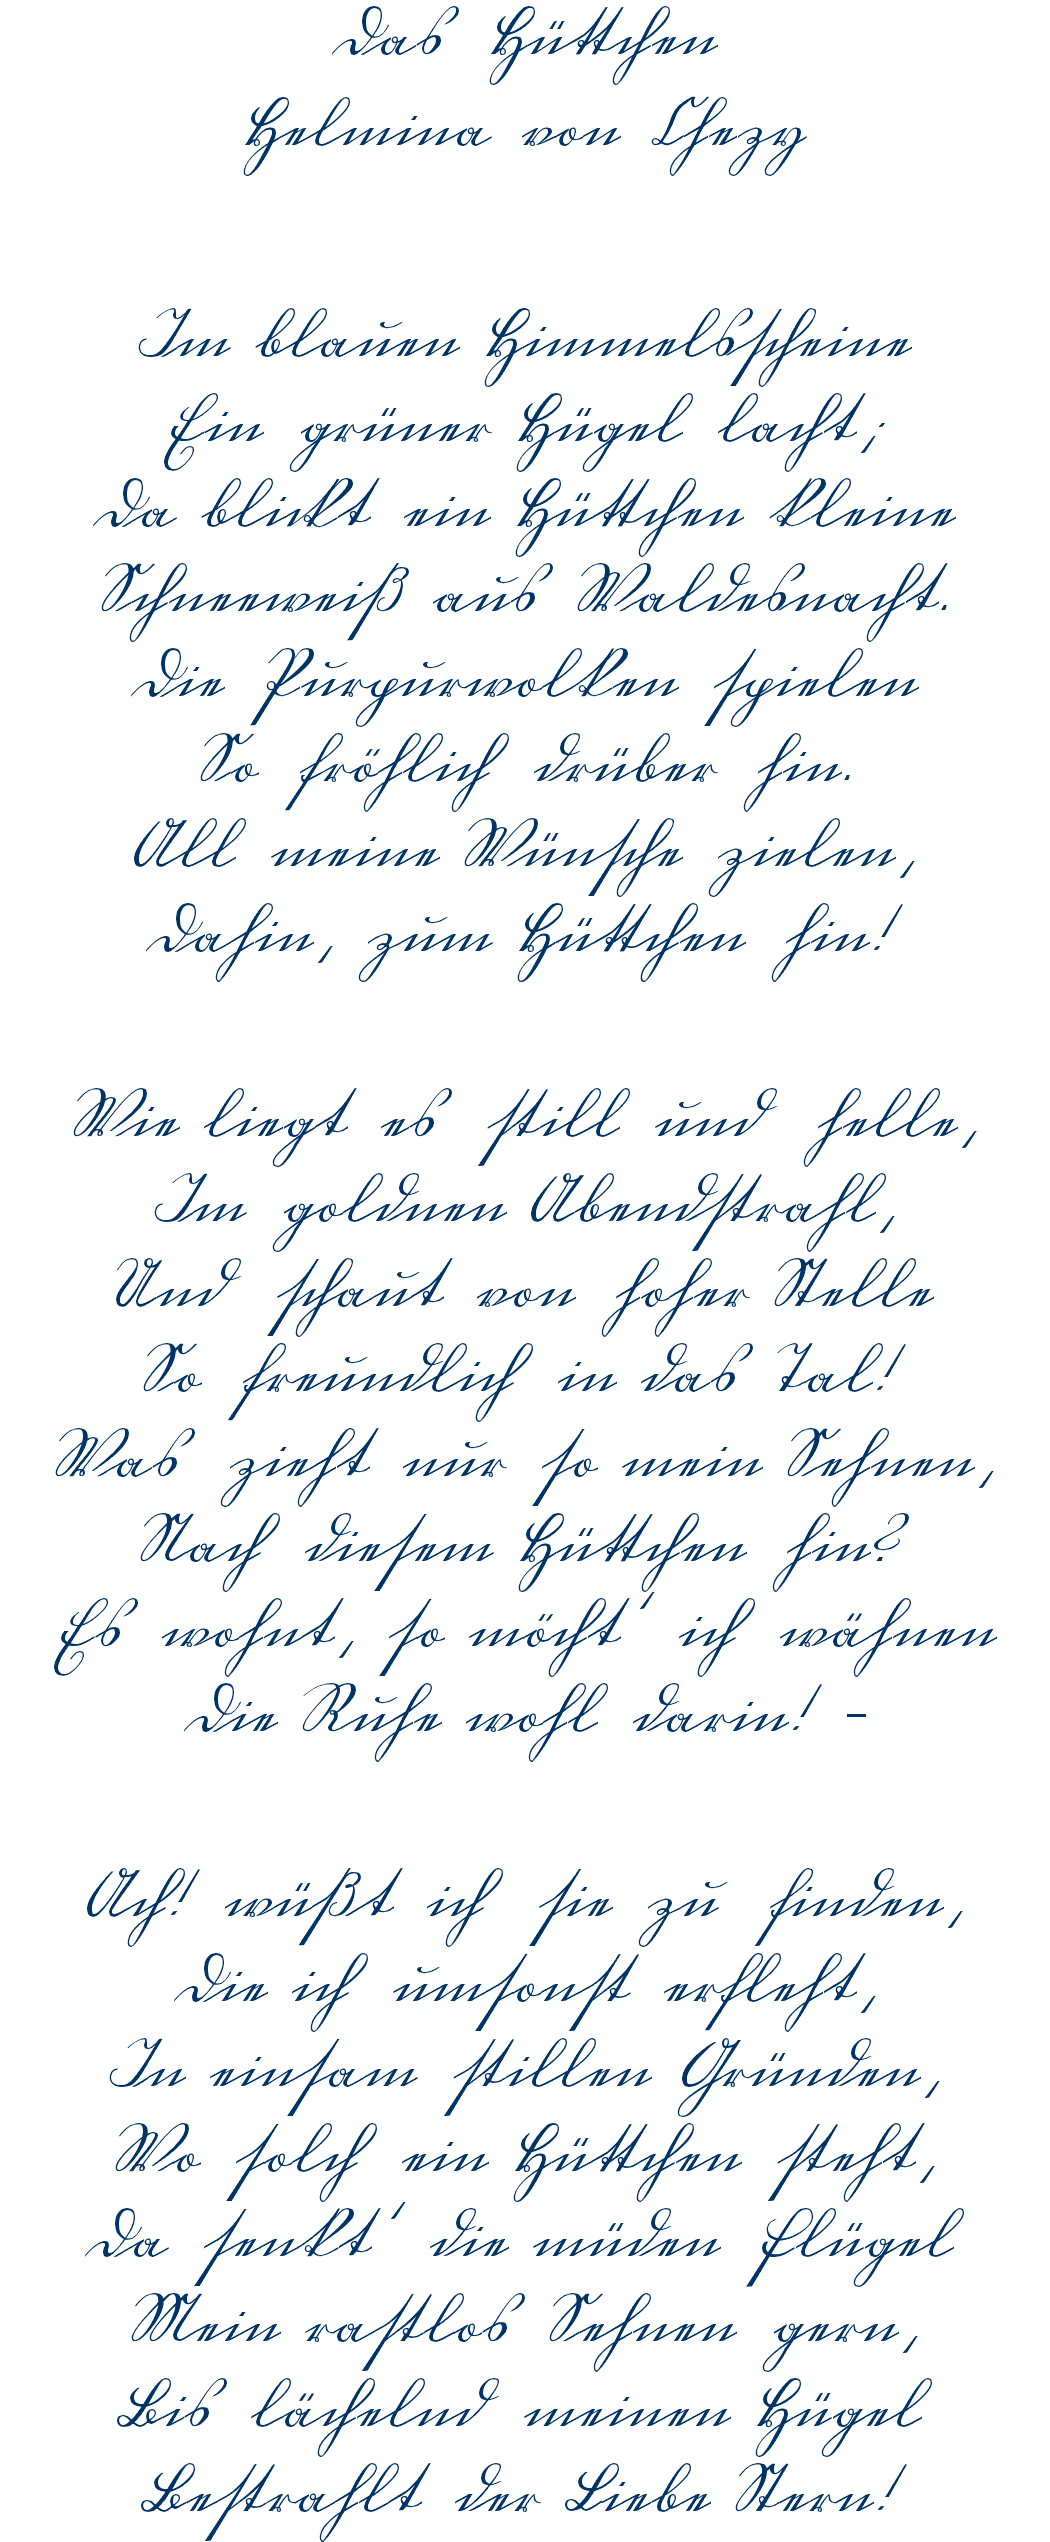 Das Hüttchen
Helmina von Chezy
Im blauen Himmelsscheine
Ein grüner Hügel lacht;
Da blickt ein Hüttchen kleine
Schneeweiß aus Waldesnacht.
Die Purpurwolken spielen
So fröhlich drüber hin.
All meine Wünsche zielen,
Dahin, zum Hüttchen hin!
Wie liegt es still und helle,
Im goldnen Abendstrahl,
Und schaut von hoher Stelle
So freundlich in das Tal!
Was zieht nur so mein Sehnen,
Nach diesem Hüttchen hin?
Es wohnt, so möcht' ich wähnen
Die Ruhe wohl darin! -
Ach! wüßt ich sie zu finden,
Die ich umsonst erfleht,
In einsam stillen Gründen,
Wo solch ein Hüttchen steht,
Da senkt' die müden Flügel
Mein rastlos Sehnen gern,
Bis lächelnd meinen Hügel
Bestrahlt der Liebe Stern!